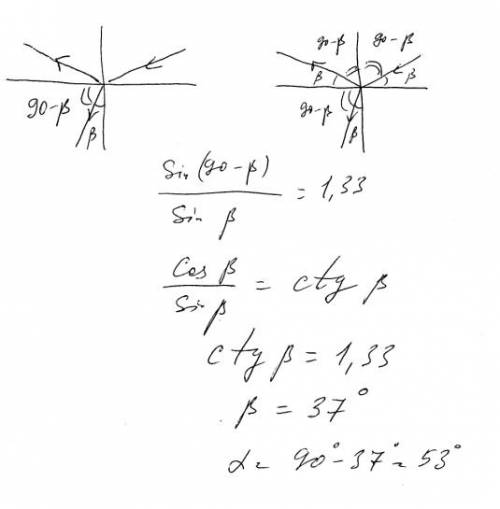 90-β
β
90-β 90-β
β β
90-β
β
Sin (90-β) / Sin β = 1,33
Cos β / Sin β = ctg β
ctg β = 1,33
β = 37°
α = 90° - 37° = 53°